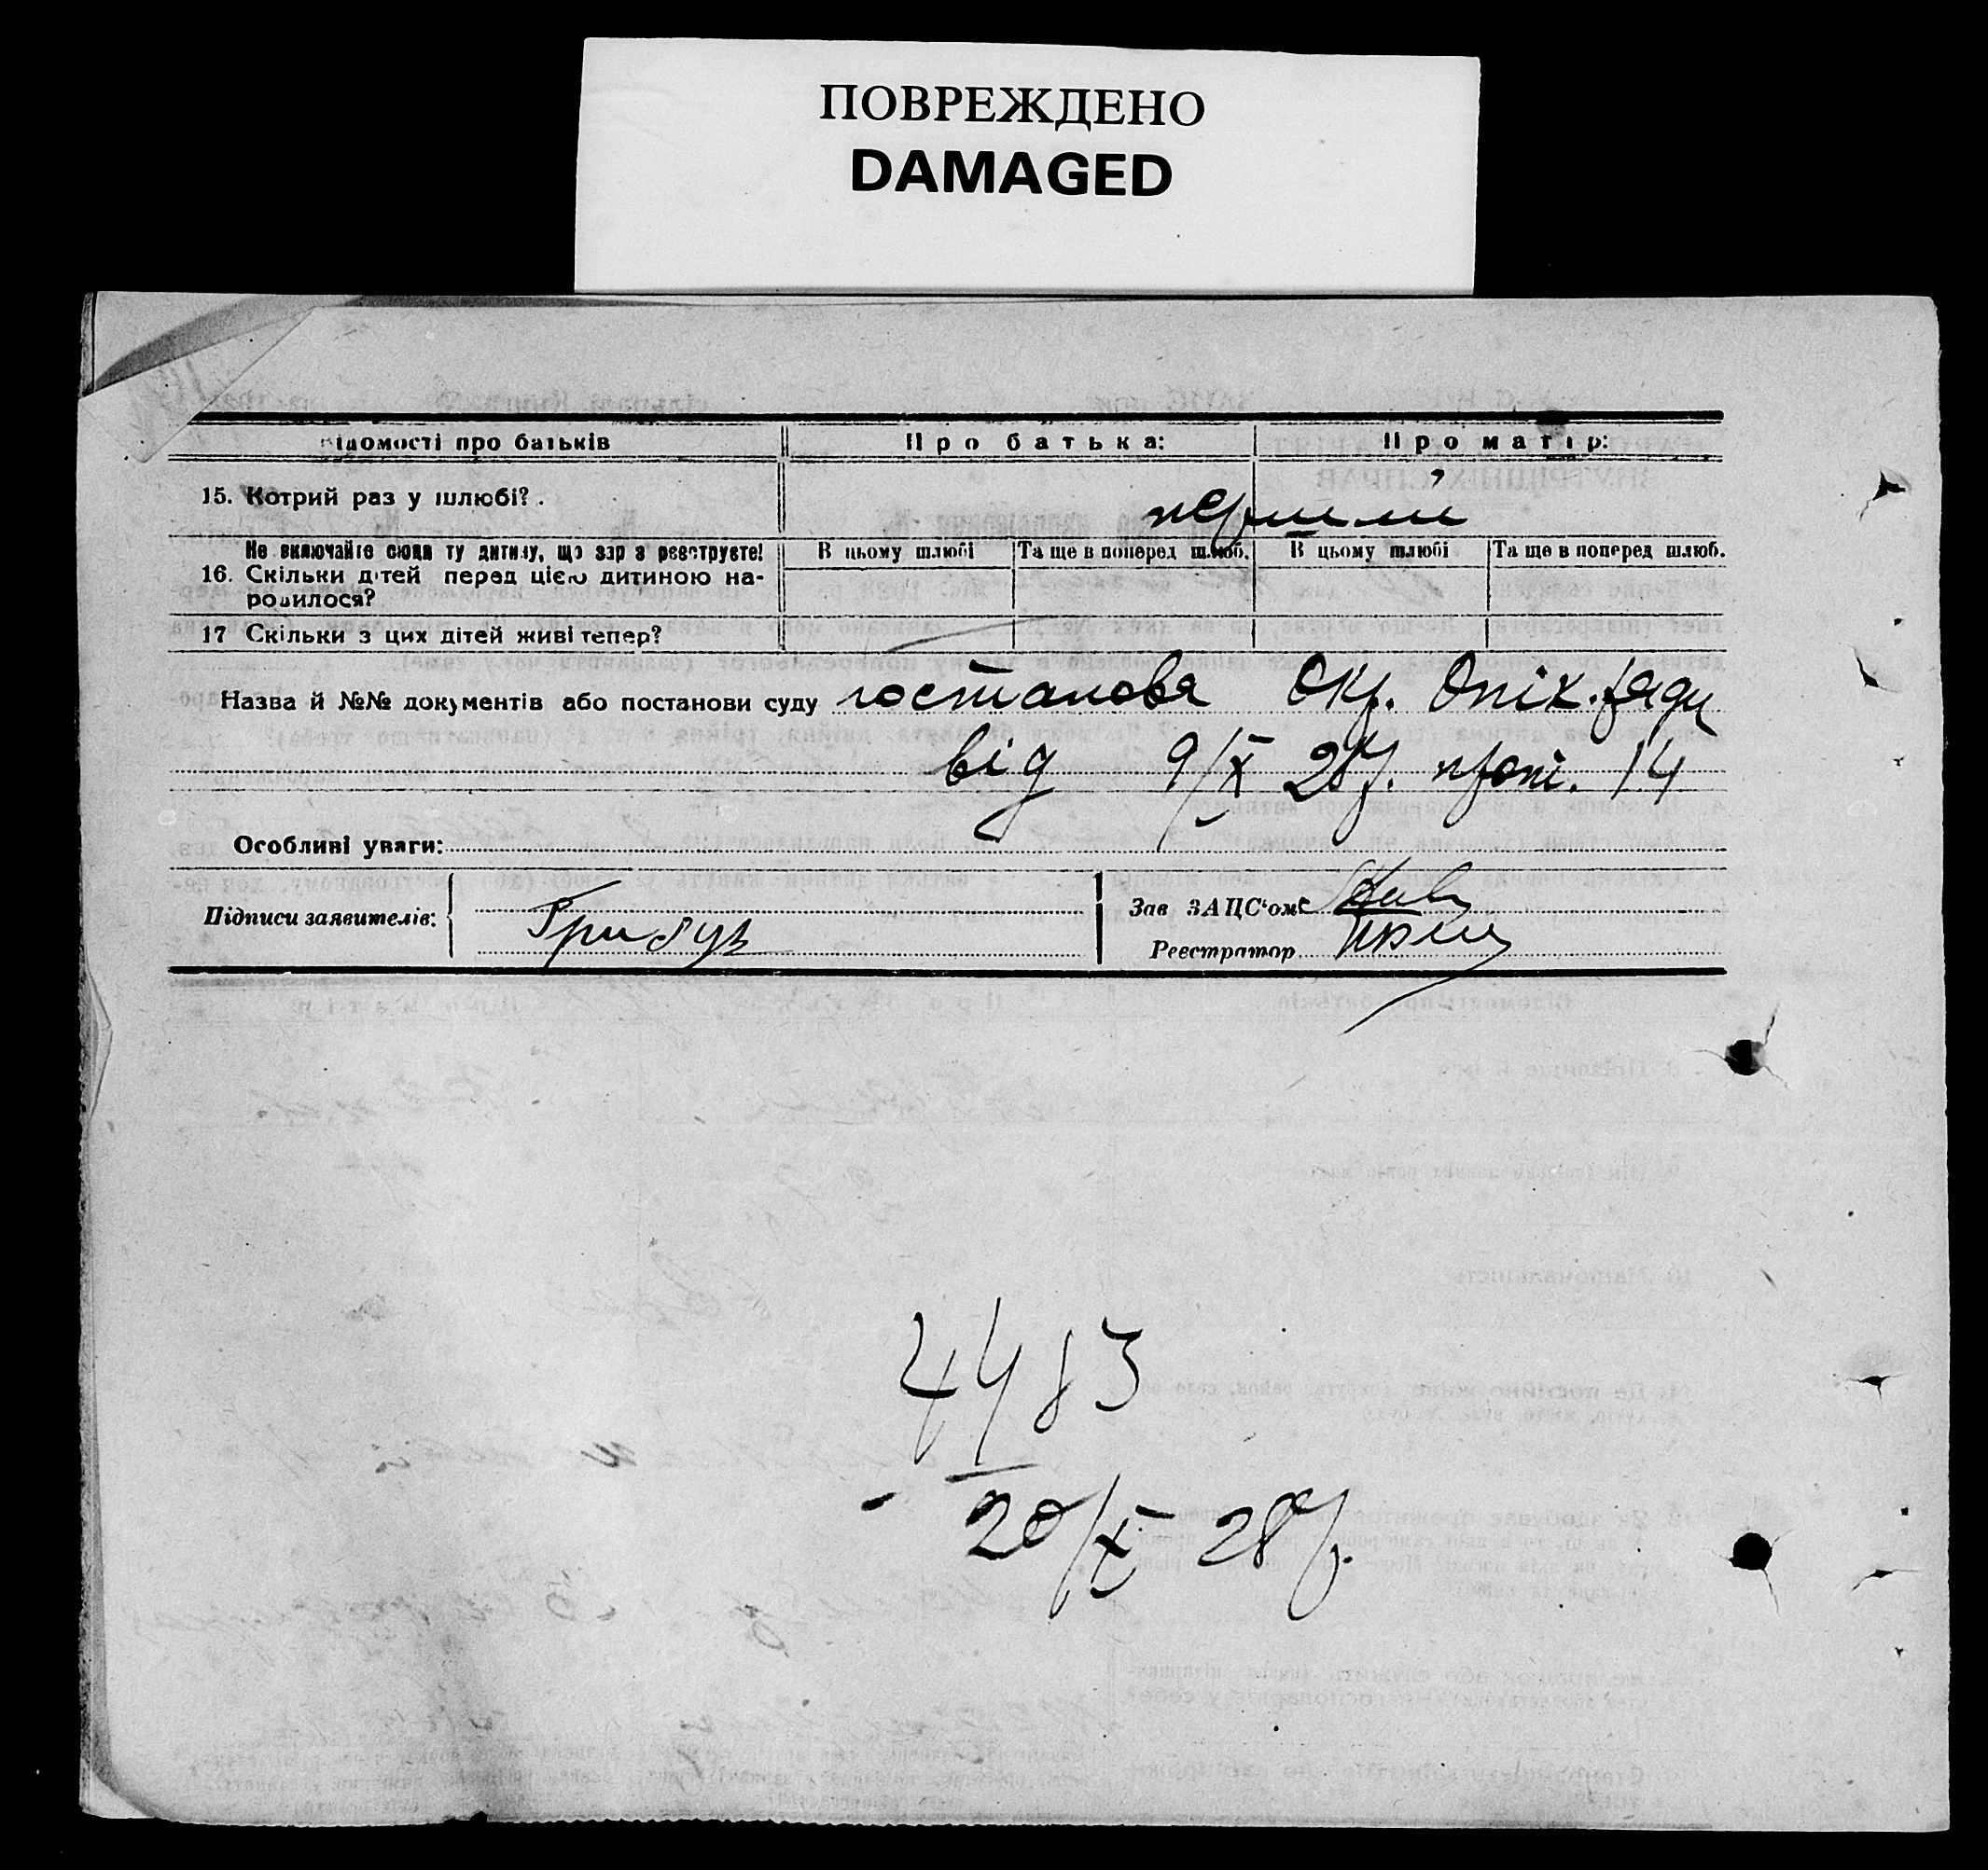 ПОВРЕЖДЕНО
DAMAGED
ідомості про батьків Про батька: Про матір:
15. Котрий раз у шлюбі? . перший
Не включайте сюди ту дитину, що зар з реєструєте! В цьому шлюбі Та ще в поперед шлюб. В цьому шлюбі Та ще в поперед шлюб.
16. Скільки дітей перед цією дитиною на-
родилося?
17 Скільки з цих дітей живі тепер?
Назва й №№ документів або постанови суду постанова Окр. Опік. ради
від 9/X 28р. прот. 14
Особливі уваги:
Підписи заявителів: Зав ЗАЦС'ом
Реєстратор
4483
20/X 28р.